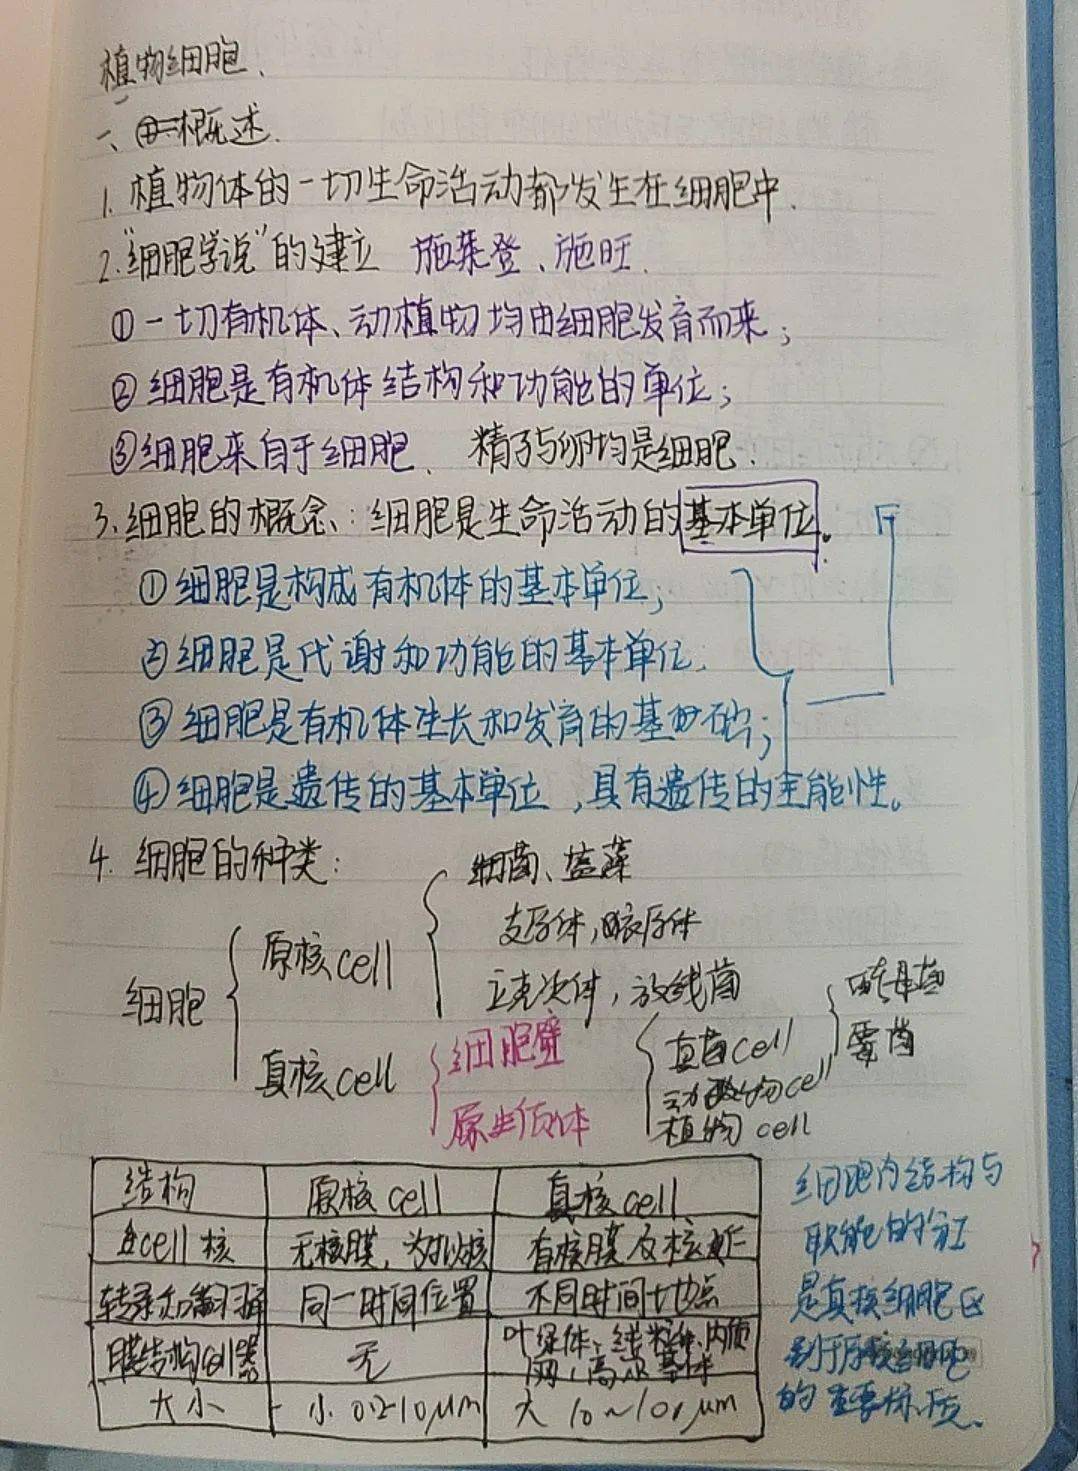 植物细胞.
一、概述.
1. 植物体的一切生命活动都发生在细胞中.
2."细胞学说"的建立 施莱登、施旺.
①一切有机体、动植物均由细胞发育而来;
②细胞是有机体结构和功能的单位;
③细胞来自于细胞. 精子与卵均是细胞.
3.细胞的概念:细胞是生命活动的基本单位.
①细胞是构成有机体的基本单位;
②细胞是代谢和功能的基本单位.
③细胞是有机体生长和发育的基础;
④细胞是遗传的基本单位,具有遗传的全能性。
4. 细胞的种类:
细胞
原核cell
细菌、蓝藻
支原体,衣原体
立克次体,放线菌
真核cell
细胞壁
原生质体
真菌cell
动物cell
植物cell
酵母菌
霉菌
结构 原核cell 真核cell
cell核 无核膜,为拟核 有核膜及核仁
转录和翻译 同一时间位置 不同时间地点
膜结构cell器 无 叶绿体、线粒体、内质网、高尔基体
大小 小 0.2-10μm 大 10~100μm
细胞内结构与
职能的分工
是真核细胞区
别于原核细胞
的重要标志.